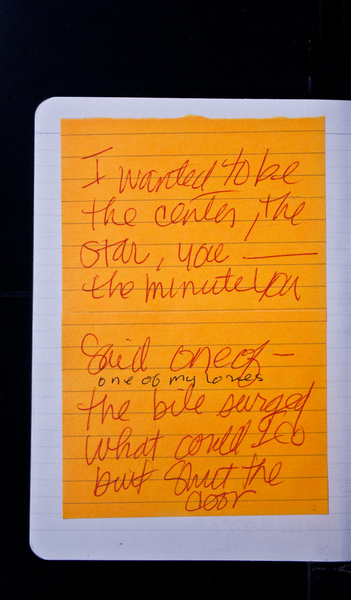 I wanted to be
the center, the
star, you —
the minute you
Said one of —
one of my loves
the bile surged
what could I do
but shut the
door